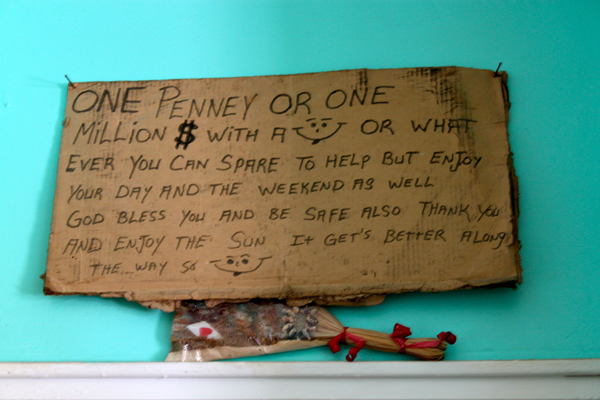 ONE PENNEY OR ONE
MILLION $ WITH A OR WHAT
EVER YOU CAN SPARE TO HELP BUT ENJOY
YOUR DAY AND THE WEEKEND AS WELL
GOD BLESS YOU AND BE SAFE ALSO THANK YOU
AND ENJOY THE SUN It GET'S BETTER ALONG
THE WAY SO